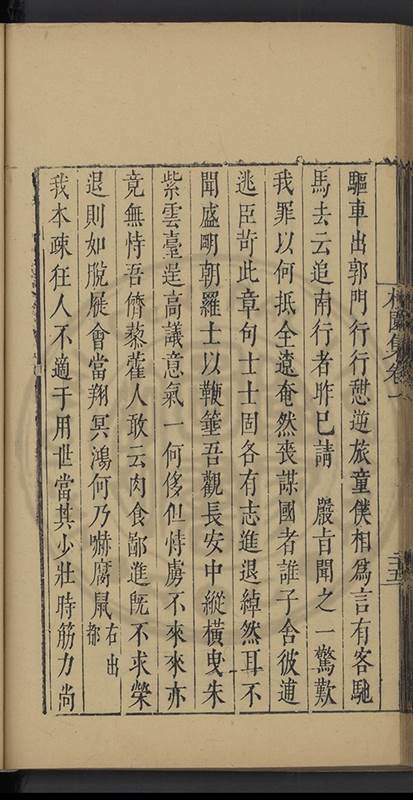 驅車出郭門行行憇逆旅童僕相爲言有客馳
馬去云追南行者昨已請　嚴旨聞之一驚歎
我罪以何抵全遼奄然喪謀國者誰子舍彼逋
逃臣苛此章句士士固各有志進退綽然耳不
聞盛明朝羅士以鞭箠吾觀長安中縱橫曳朱
紫雲臺逞高議意氣一何侈但恃虜不來來亦
竟無恃吾儕藜藿人敢云肉食鄙進旣不求榮
退則如脫屣會當翔冥鴻何乃嚇腐鼠右出都
我本疎狂人不適于用世當其少壯時筋力尚
集卷一
二五